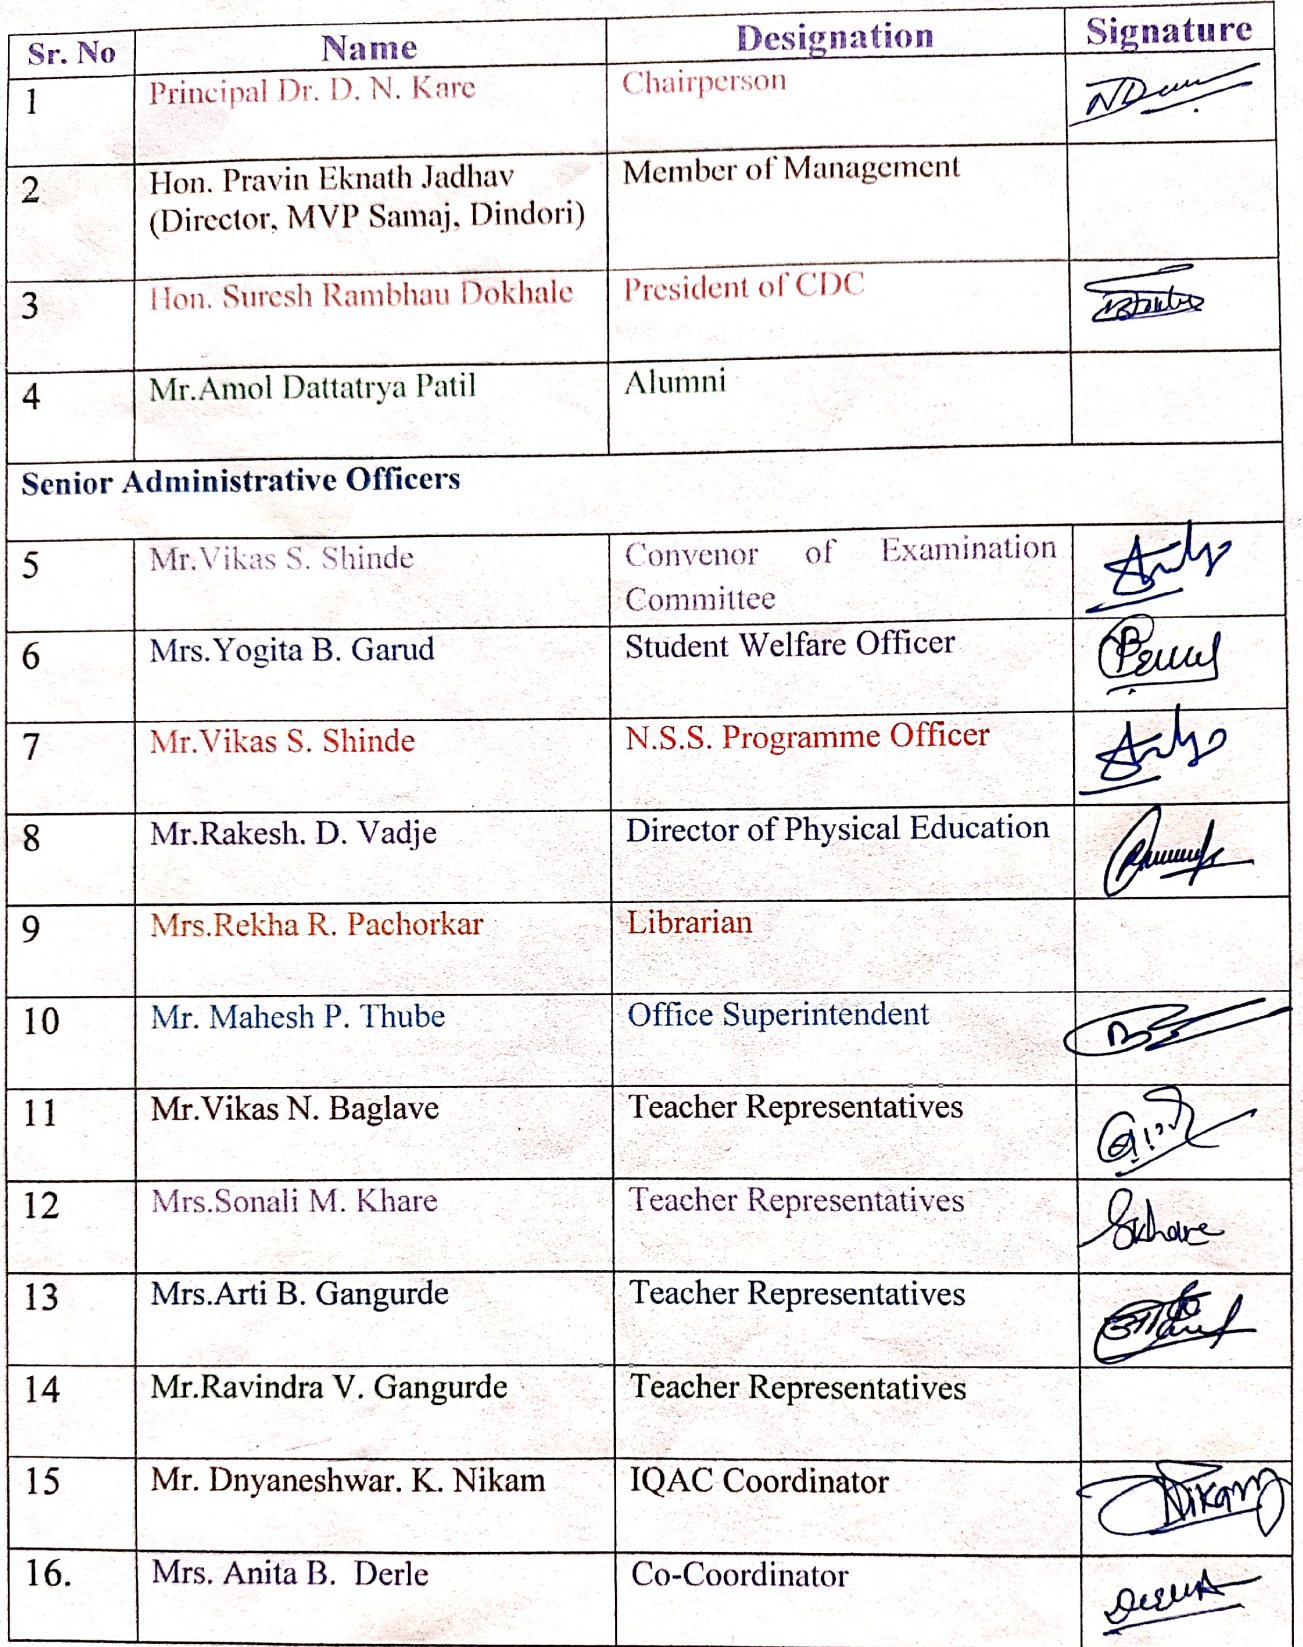 Sr. No Name Designation Signature
1 Principal Dr. D. N. Kare Chairperson
2 Hon. Pravin Eknath Jadhav Member of Management
(Director, MVP Samaj, Dindori)
3 Hon. Suresh Rambhau Dokhale President of CDC
4 Mr.Amol Dattatrya Patil Alumni
Senior Administrative Officers
5 Mr.Vikas S. Shinde Convenor of Examination
Committee
6 Mrs.Yogita B. Garud Student Welfare Officer
7 Mr.Vikas S. Shinde N.S.S. Programme Officer
8 Mr.Rakesh. D. Vadje Director of Physical Education
9 Mrs.Rekha R. Pachorkar Librarian
10 Mr. Mahesh P. Thube Office Superintendent
11 Mr.Vikas N. Baglave Teacher Representatives
12 Mrs.Sonali M. Khare Teacher Representatives Skhare
13 Mrs.Arti B. Gangurde Teacher Representatives
14 Mr.Ravindra V. Gangurde Teacher Representatives
15 Mr. Dnyaneshwar. K. Nikam IQAC Coordinator
16. Mrs. Anita B. Derle Co-Coordinator